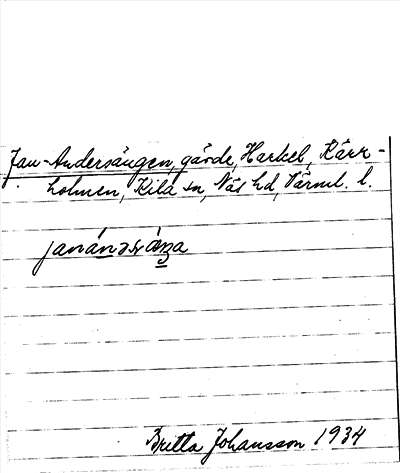 Jan-Andersängen, gärde, Harkel, Kärr-
holmen, Kila sn, Näs hd, Värml. l.
Britta Johansson 1934